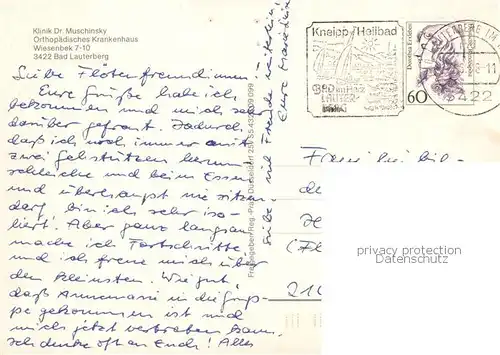 Klinik Dr. Muschinsky
Orthopädisches Krankenhaus
Wiesenbek 7-10
3422 Bad Lauterberg
Liebe Flötenfreundinnen!
Eure Grüße habe ich
bekommen und mich sehr
darüber gefreut. Dadurch
daß ich noch immer mit
zwei Gehstützen herum
schleiche und beim Essen
und überhaupt nie sitzen
darf, bin ich sehr iso-
liert. Aber ganz langsam
mache ich Fortschritte
und ich freue mich über
den kleinsten. Wie gut,
daß Annemarie in die Grup-
pe gekommen ist und
mich jetzt vertreten kann.
Ich denke oft an Euch! Alles
Gute und Freude weiterhin!
Eure
Freigegeben Reg.-Präs. Düsseldorf
Kneipp Heilbad
BAD IM HARZ
LAUTER-
BERG
Dorothea Erxleben
60
3422
(Fl
privacy protection
Datenschutz